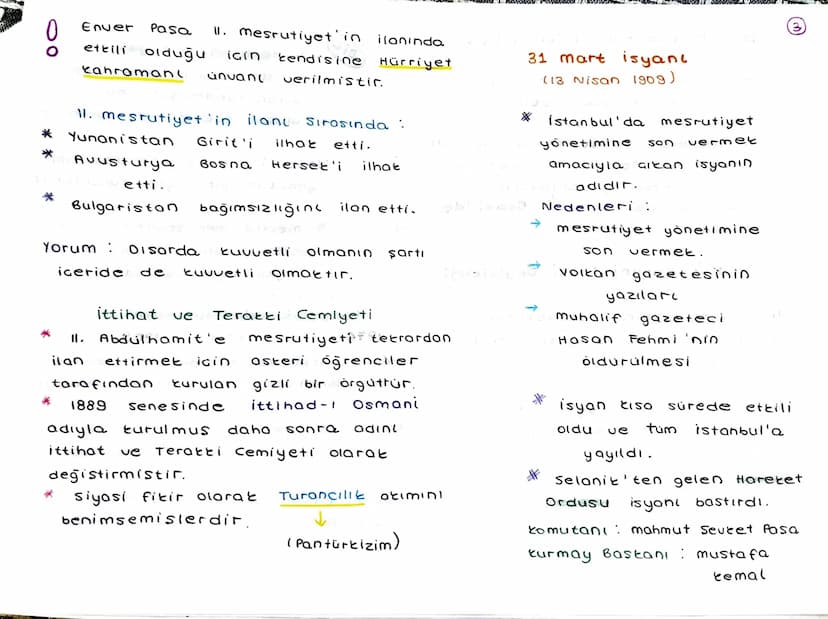 3
Enver Paşa II. meşrutiyet'in ilanında
etkili olduğu için kendisine Hürriyet
kahramanı ünvanı verilmiştir.
II. meşrutiyet'in ilanı sırasında :
* Yunanistan Girit'i ilhak etti.
* Avusturya Bosna Hersek'i ilhak
etti.
* Bulgaristan bağımsızlığını ilan etti.
Yorum : Dışarda kuvvetli olmanın şartı
içeride de kuvvetli olmaktır.
İttihat ve Terakki Cemiyeti
* II. Abdülhamit'e meşrutiyeti tekrardan
ilan ettirmek için askeri öğrenciler
tarafından kurulan gizli bir örgüttür.
* 1889 senesinde İttihad-ı Osmani
adıyla kurulmuş daha sonra adını
İttihat ve Terakki Cemiyeti olarak
değiştirmiştir.
* Siyasi fikir olarak Turancılık akımını
benimsemişlerdir.
↓
(Pantürkizim)
31 mart isyanı
(13 Nisan 1909)
* İstanbul'da meşrutiyet
yönetimine son vermek
amacıyla çıkan isyanın
adıdır.
Nedenleri :
→ meşrutiyet yönetimine
son vermek.
→ Volkan gazetesinin
yazıları
→ muhalif gazeteci
Hasan Fehmi'nin
öldürülmesi
* İsyan kısa sürede etkili
oldu ve tüm İstanbul'a
yayıldı.
* Selanik'ten gelen Hareket
Ordusu isyanı bastırdı.
komutanı : mahmut Şevket Paşa
kurmay Başkanı : mustafa
kemal